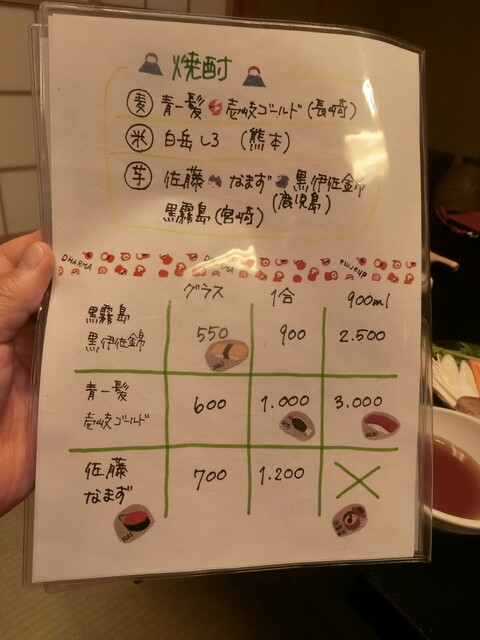 焼酎
麦 青一髪 壱岐ゴールド (長崎)
米 白岳しろ (熊本)
芋 佐藤 なまず 黒伊佐錦
黒霧島(宮崎) (鹿児島)
DHARMA DHARMA dharma
グラス 1合 900ml
黒霧島
黒伊佐錦 550 900 2.500
青一髪
壱岐ゴールド 600 1.000 3.000
佐藤
なまず 700 1.200 ×